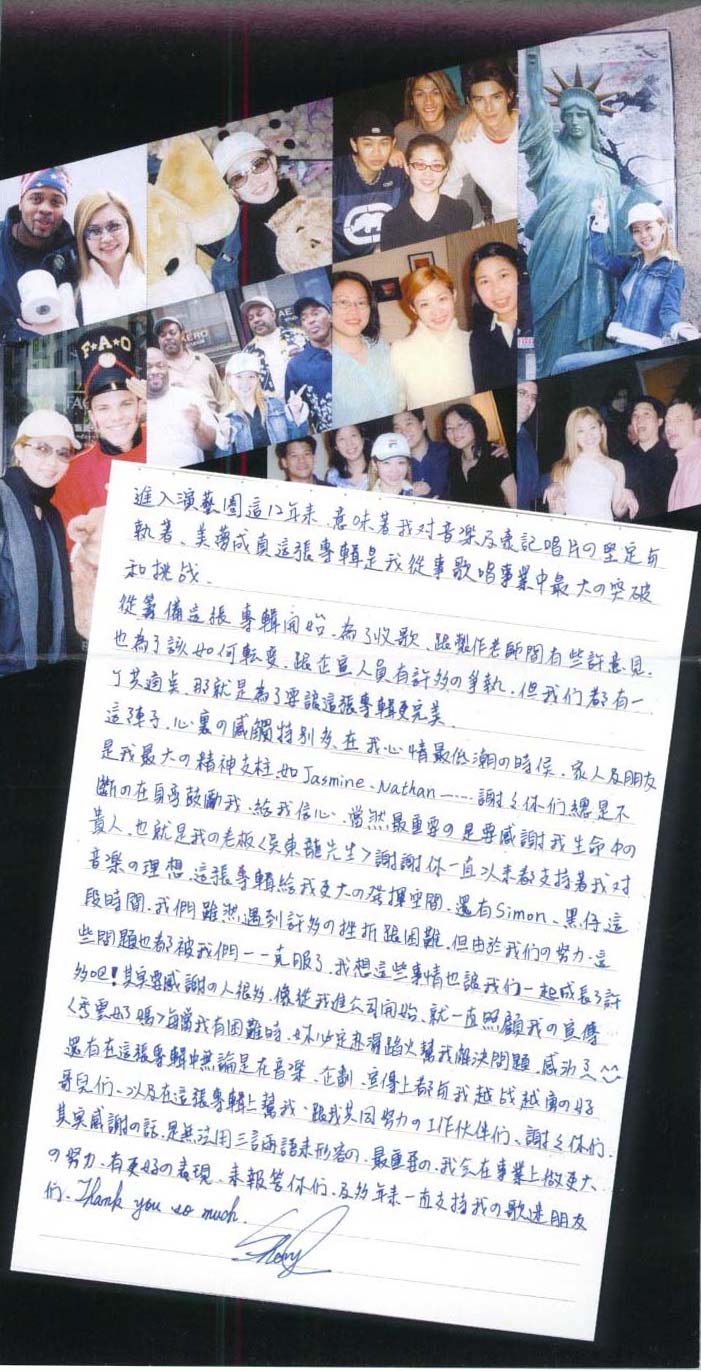 F★A★O
AERO
FILA
進入演藝圈這12年來、意味著我对音楽及豪記唱片の堅定与
執著、美夢成真這張專輯是我從事歌唱事業中最大の突破
和挑战、
從籌備這張專輯開始、為了收歌、跟製作老師間有些許意見、
也為了該如何転変、跟企宣人員有許多の爭執、但我们都有一
丁共適点、那就是為了要讓這張專輯更完美、
這陣子、心裏の感觸特別多、在我心情最低潮の時侯、家人及朋友
是我最大の精神支柱、如Jasmine、Nathan……謝々你們總是不
斷の在身旁鼓勵我、給我信心、當然最重要の是要感謝我生命中の
貴人、也就是我の老板<吳東龍先生>謝謝你一直以來都支持著我对
音楽の理想、這張專輯給我更大の發揮空間、還有Simon、黑仔、這
段時間、我們雖然遇到許多の挫折跟困難、但由於我们の努力、這
些問題也都被我們一一克服了、我想這些事情也讓我们一起成長了許
多吧！其实要感謝の人很多、像從我進公司開始、就一直照顧我の宣傳
<秀雲好媽>每當我有困難時、妳必定赴湯蹈火幫我解決問題、感动ㄋ
還有在這張專輯中無論是在音楽、企劃、宣傳上都与我越战越勇の好
哥兒们、以及在這張專輯上幫我、跟我共同努力の工作伙伴们、謝々你们、
其实感謝の話、是無法用三言兩語來形容の、最重要の、我会在事業上做更大
の努力、有更好の表現、来報答你們、及多年来一直支持我の歌迷朋友
们、Thank you so much.